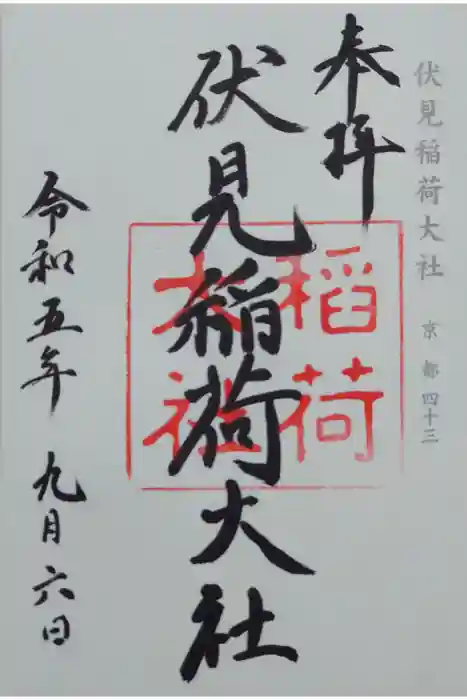 伏見稲荷大社 京都四十三
奉拝
伏見稲荷大社
稲荷
大社
令和五年 九月六日